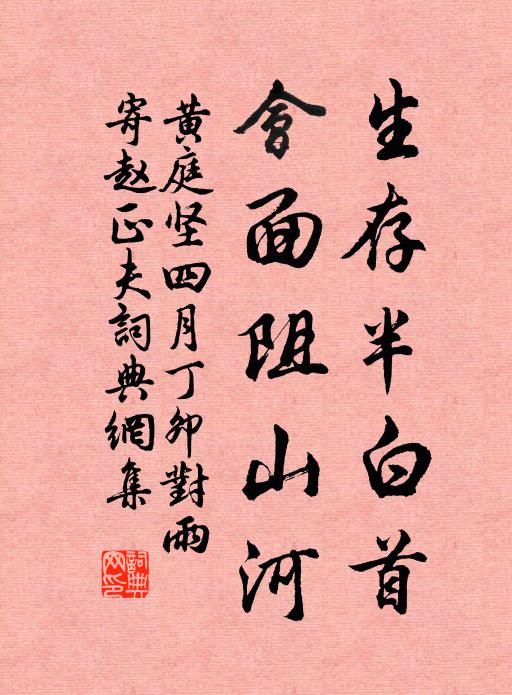 生存半白首
會面阻山河
黄庭坚四月丁卯對雨
寄赵正夫詞典網集
詞典網印